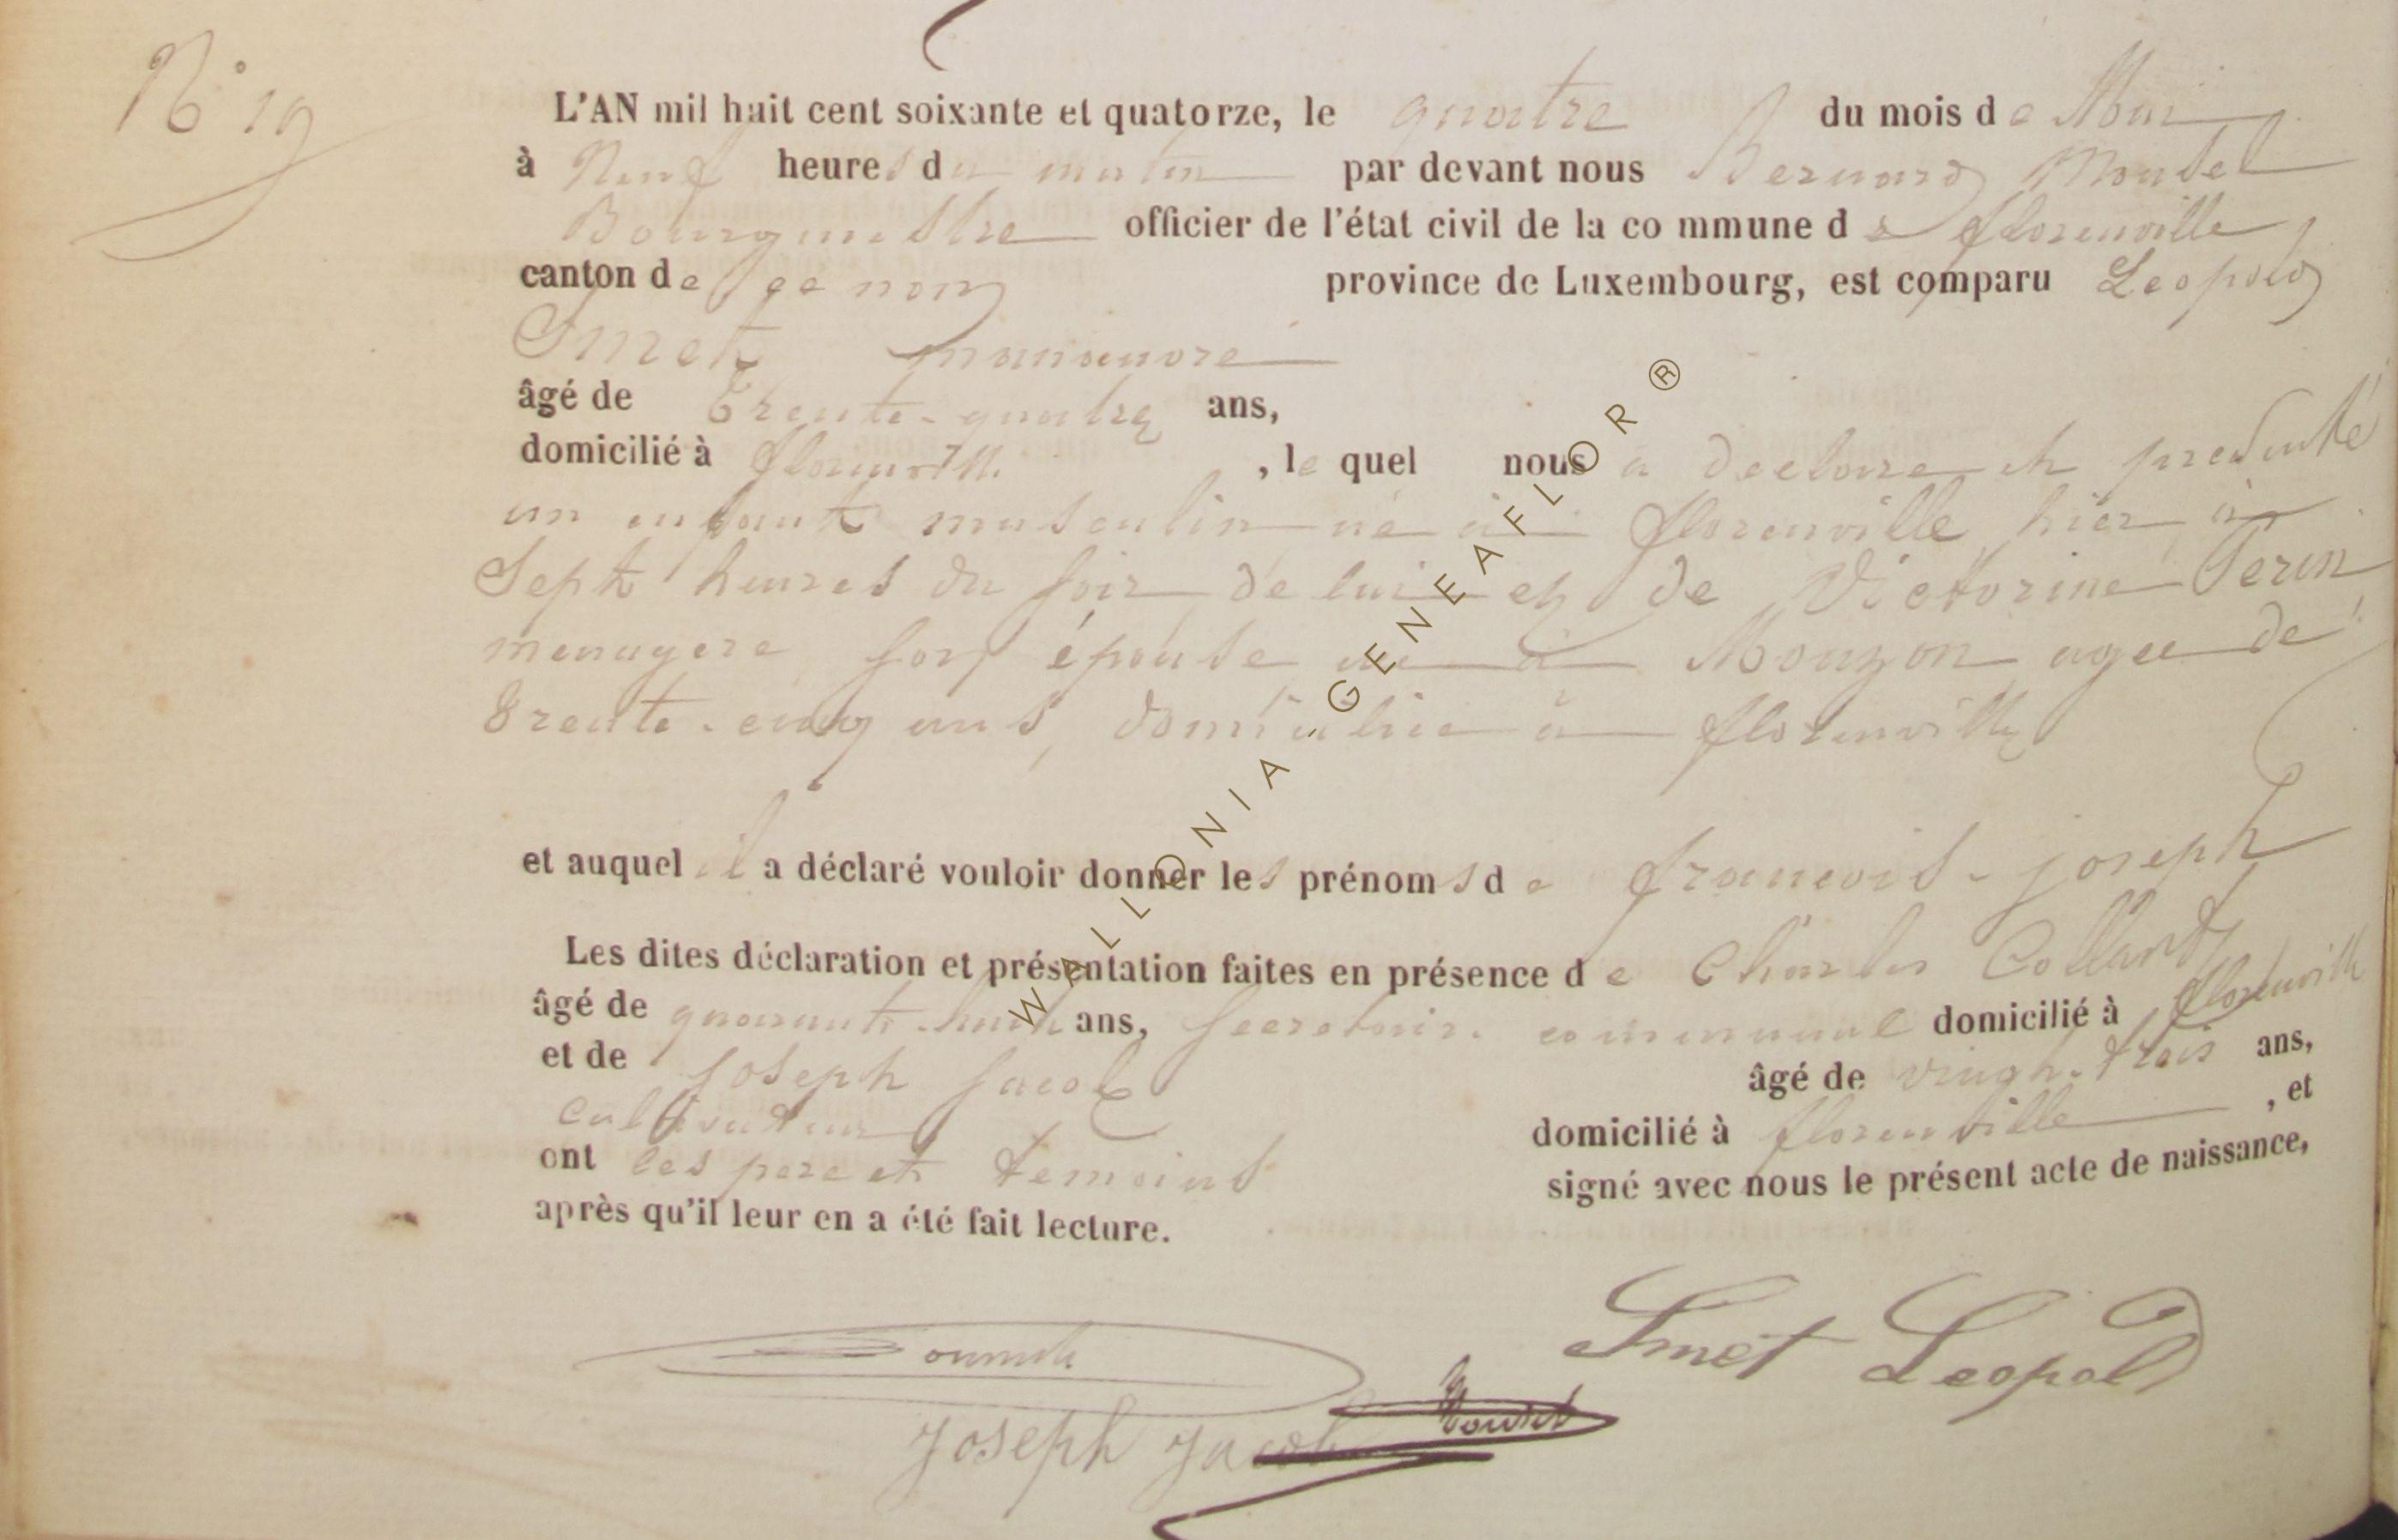 N° 19
L'AN mil huit cent soixante et quatorze, le quatre du mois de Mai
à Neuf heures du matin par devant nous Bernard Moutet
Bourgmestre officier de l'état civil de la commune de florenville
canton de ce nom province de Luxembourg, est comparu Leopold
Smet manoeuvre
âgé de trente-quatre ans,
domicilié à florenville, le quel nous a declare et presenté
un enfant masculin né à florenville hier à
Sept heures du soir de lui et de Victorine Perin
menagere son épouse née à Mouzon agee de
trente-cinq ans, domiciliée à florenville
et auquel il a déclaré vouloir donner les prénoms de francois-joseph
Les dites déclaration et présentation faites en présence de Charles Collard
âgé de quarante-huit ans, Secretaire communal domicilié à florenville
et de Joseph Jacob âgé de vingt-trois ans,
cultivateur domicilié à florenville, et
ont les pere et temoins signé avec nous le présent acte de naissance,
après qu'il leur en a été fait lecture.
Smet Leopold
Joseph Jacob
WALLONIA - GENEAFLOR ®